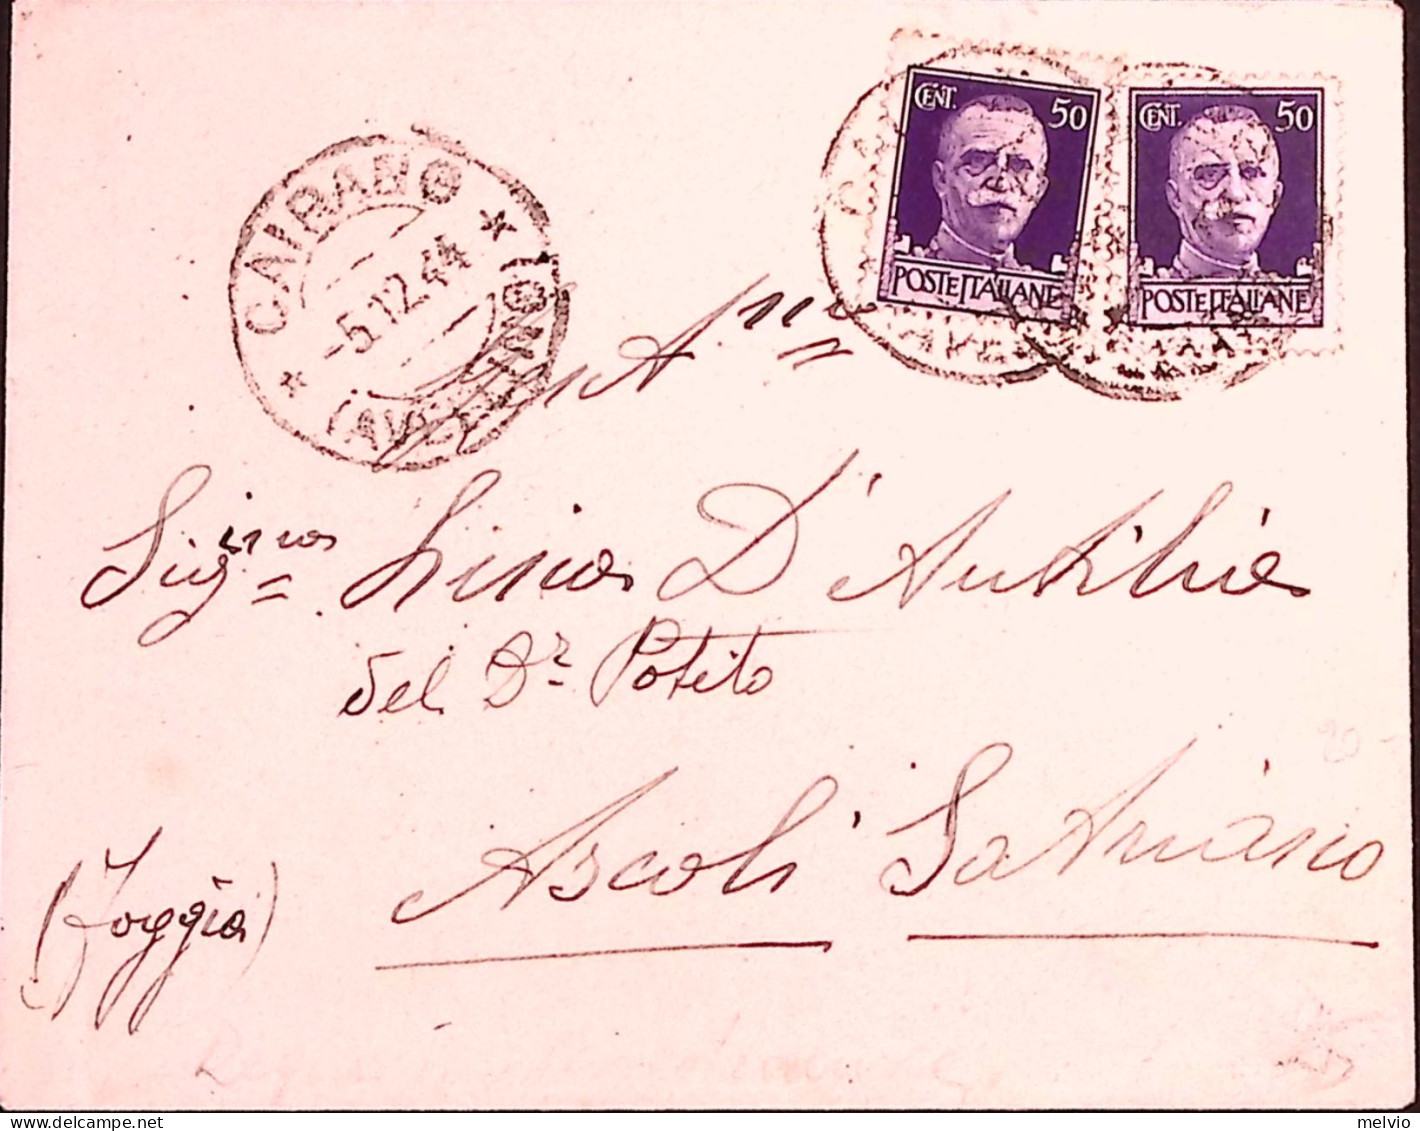 CENT. 50
POSTE ITALIANE
CENT. 50
POSTE ITALIANE
CAIRANO
-5.12.44
* (AVELLINO) *
Sig.na Lina D'Autilia
del Dr Potito
Ascoli Satriano
(Foggia)
melvio